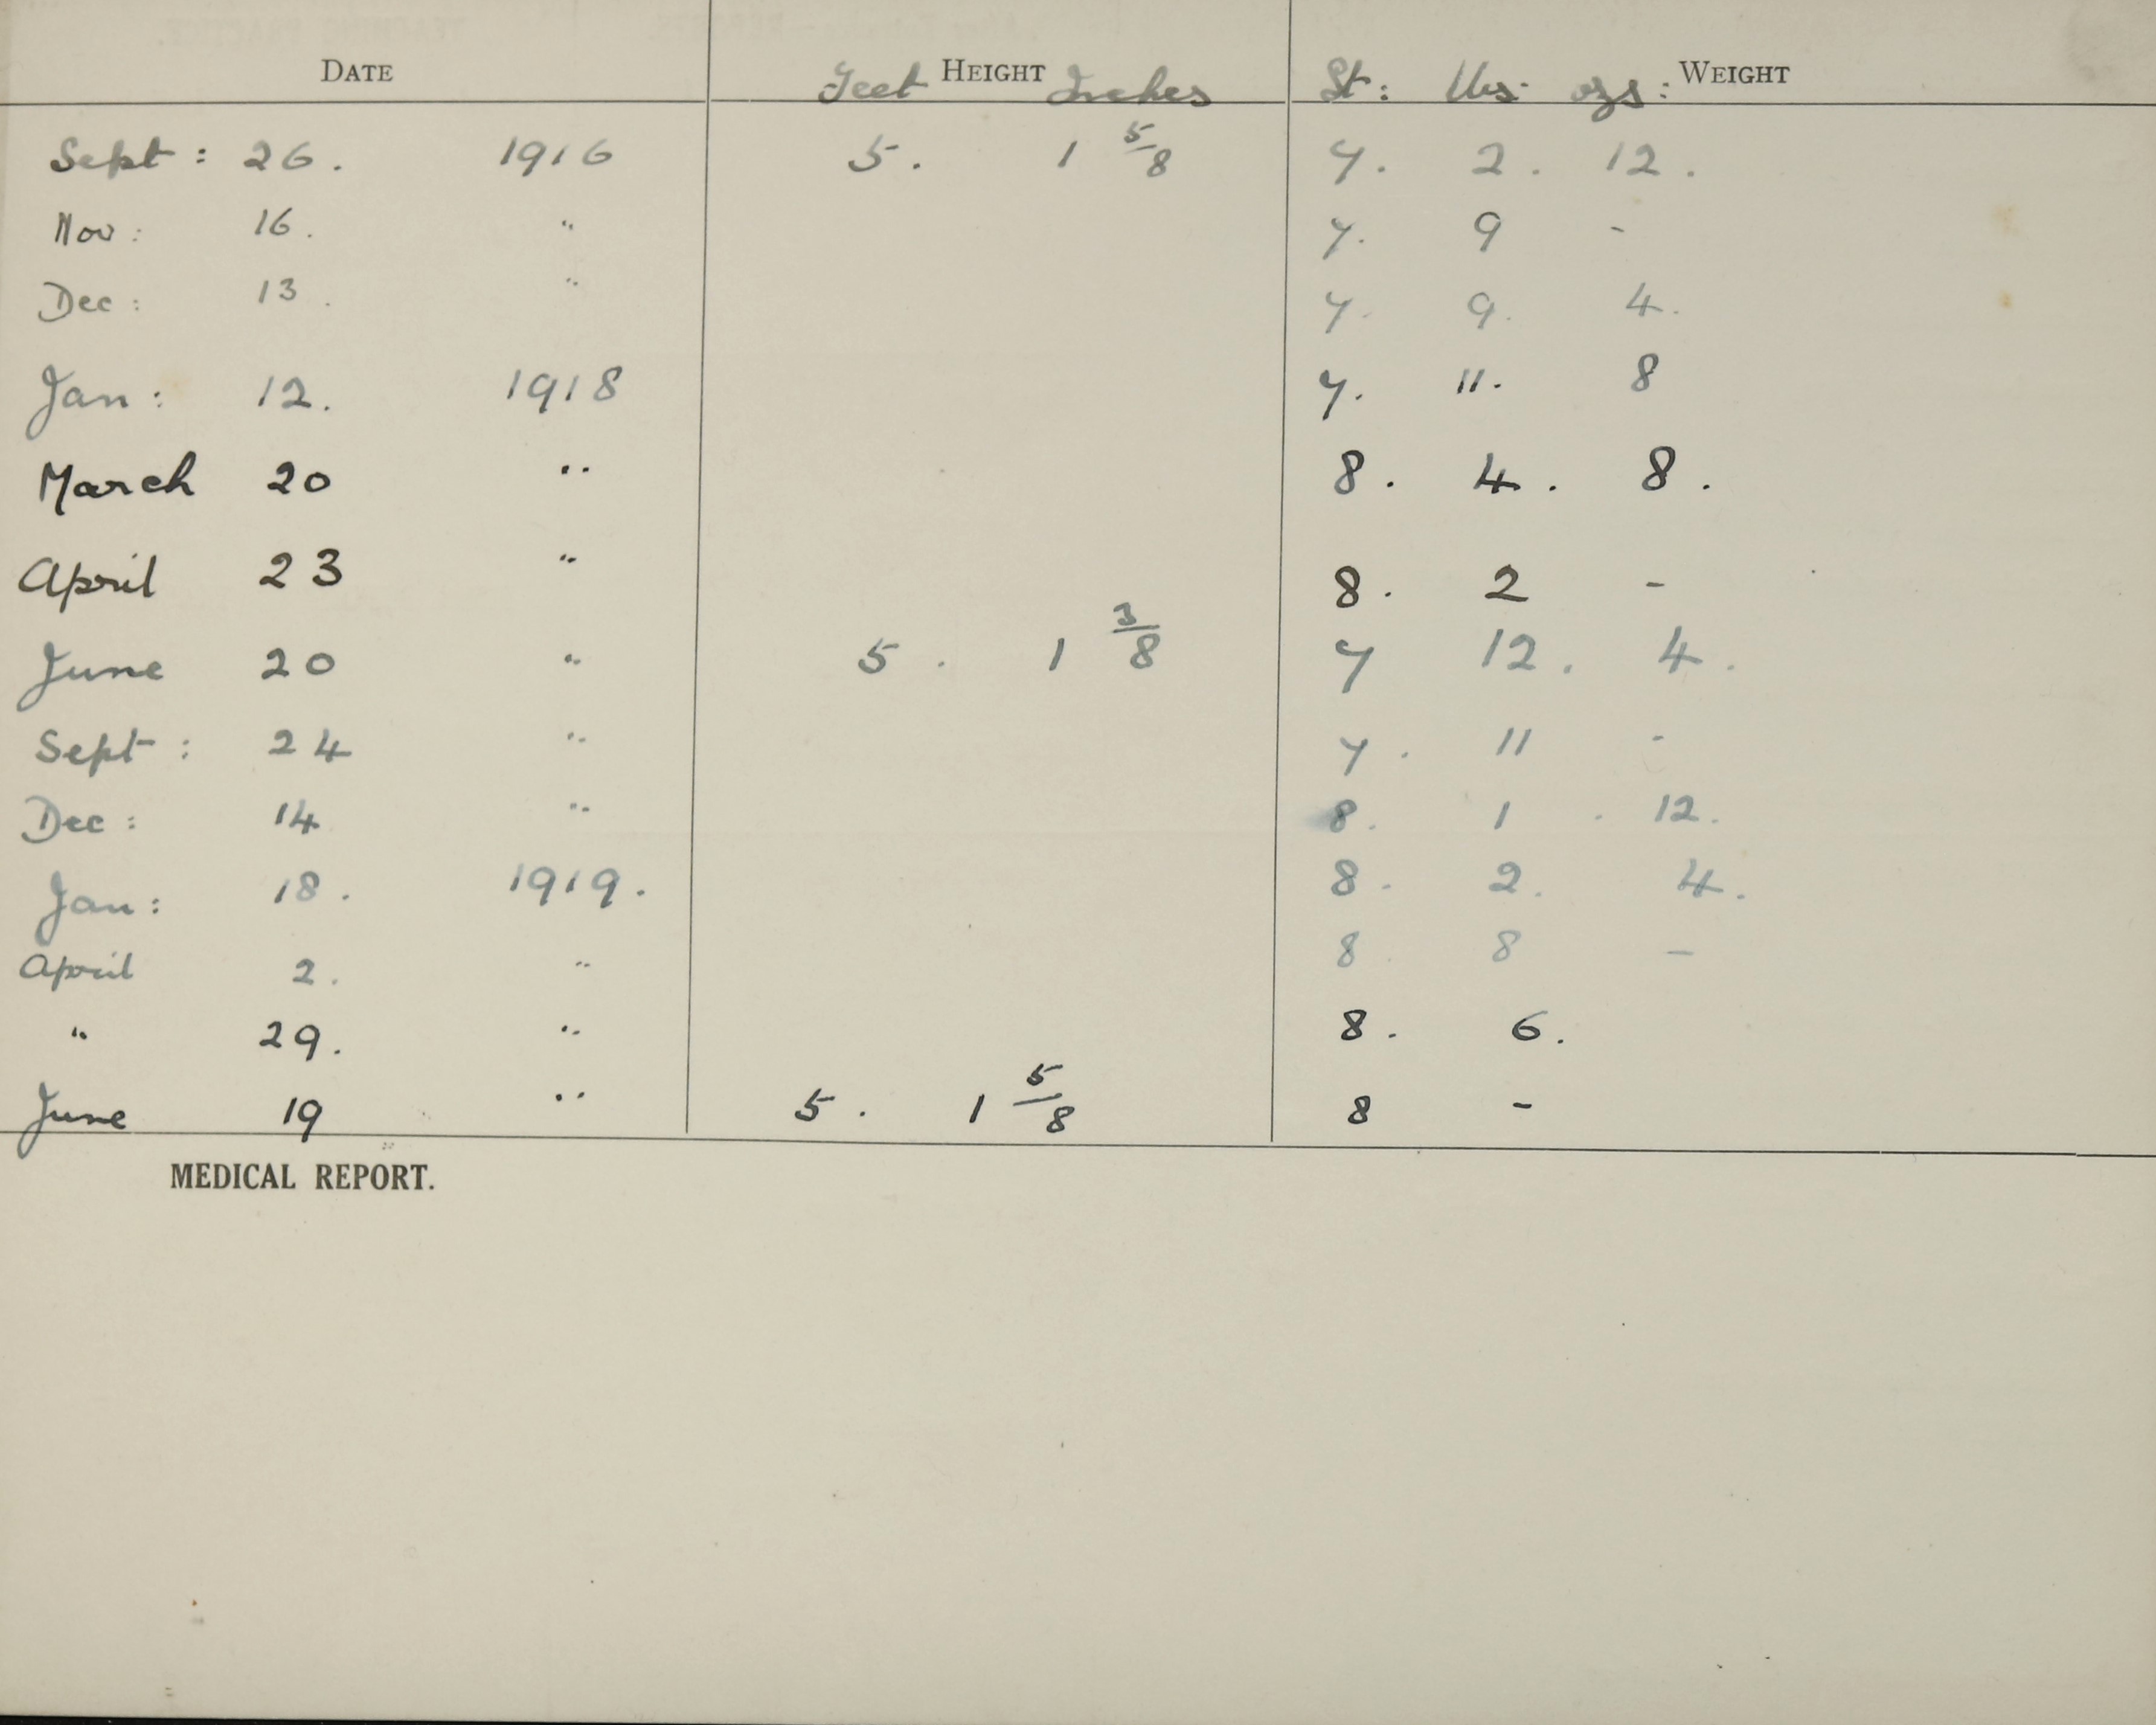 DATE HEIGHT Feet Inches WEIGHT St: lbs. ozs:
Sept: 26. 1916 5. 1 5/8 7. 2. 12.
Nov: 16. " 7. 9 -
Dec: 13. " 7. 9. 4.
Jan: 12. 1918 7. 11. 8
March 20 " 8. 4. 8.
April 23 " 8. 2 -
June 20 " 5. 1 3/8 7 12. 4.
Sept: 24 " 7. 11 -
Dec: 14 " 8. 1. 12.
Jan: 18. 1919. 8. 2. 4.
April 2. " 8. 8 -
" 29. " 8. 6.
June 19 " 5. 1 5/8 8 -
MEDICAL REPORT.